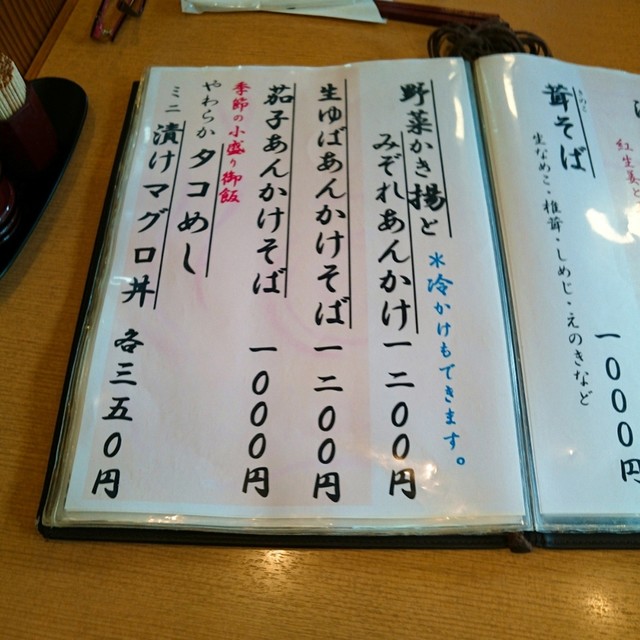 茸そば
きのこ
生なめこ・椎茸・しめじ・えのきなど
一〇〇〇円
紅生姜と
※冷かけもできます。
野菜かき揚と
みぞれあんかけ一二〇〇円
生ゆばあんかけそば一二〇〇円
茄子あんかけそば一〇〇〇円
季節の小盛り御飯
やわらかタコめし
ミニ漬けマグロ丼各三五〇円